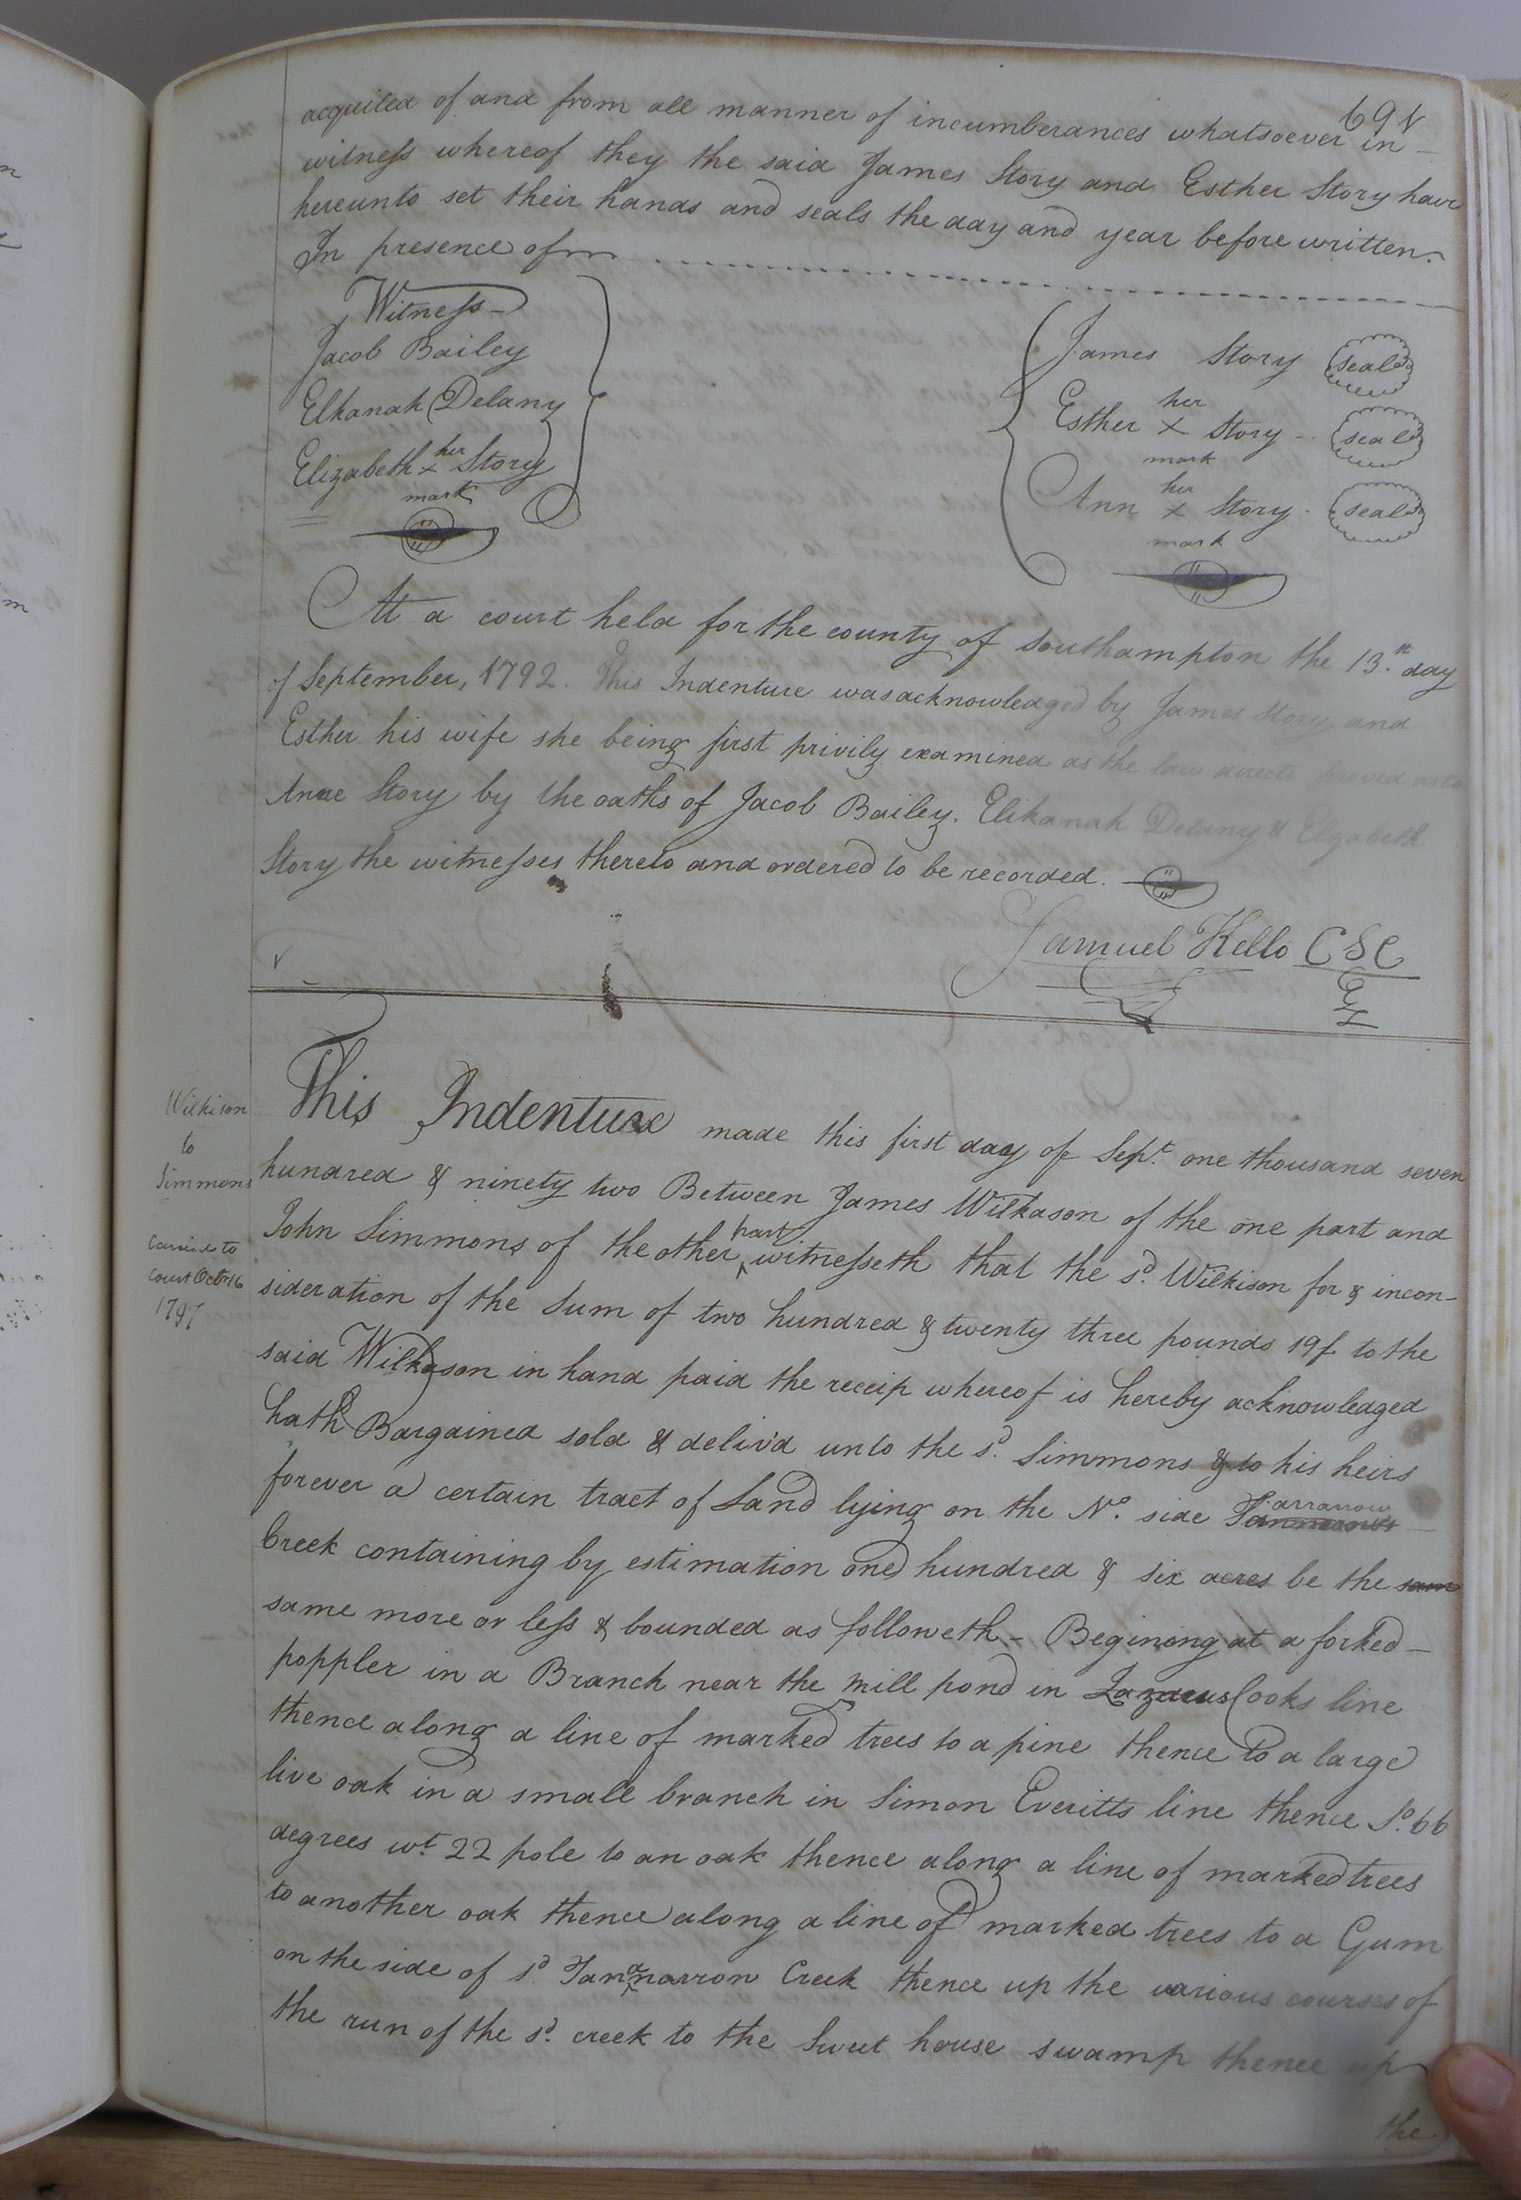 691
acquited of and from all manner of incumberances whatsoever in
witness whereof they the said James Story and Esther Story have
hereunto set their hands and seals the day and year before written.
In presence of
Witness
Jacob Bailey
Elkanah Delany
Elizabeth her x mark Story
James Story seal
Esther her x mark Story seal
Ann her x mark Story seal
At a court held for the county of Southampton the 13.th day
of September, 1792. This Indenture was acknowledged by James Story and
Esther his wife she being first privily examined as the law directs proved as to
Anne Story by the oaths of Jacob Bailey. Elikanah Delany & Elizabeth
Story the witnesses thereto and ordered to be recorded.
Samuel Kello CSC
Wilkison
to
Simmons
Carried to
court Octr 16
1797
This Indenture made this first day of Sept. one thousand seven
hundred & ninety two Between James Wilkason of the one part and
John Simmons of the other part witnesseth that the sd. Wilkison for & in con-
sideration of the Sum of two hundred & twenty three pounds 19s to the
said Wilkason in hand paid the receip whereof is hereby acknowledged
hath Bargained sold & deliv'd unto the sd. Simmons & to his heirs
forever a certain tract of Land lying on the No. side arrarrow
Creek containing by estimation one hundred & six acres be the same
same more or less & bounded as followeth - Begining at a forked
poppler in a Branch near the mill pond in Lazarus Cooks line
thence along a line of marked trees to a pine thence to a large
live oak in a small branch in Simon Everitts line thence So. 66
degrees wt. 22 pole to an oak thence along a line of marked trees
to another oak thence along a line of marked trees to a Gum
on the side of sd. Creek thence up the various courses of
the run of the sd. creek to the Sweet house swamp thence up
the